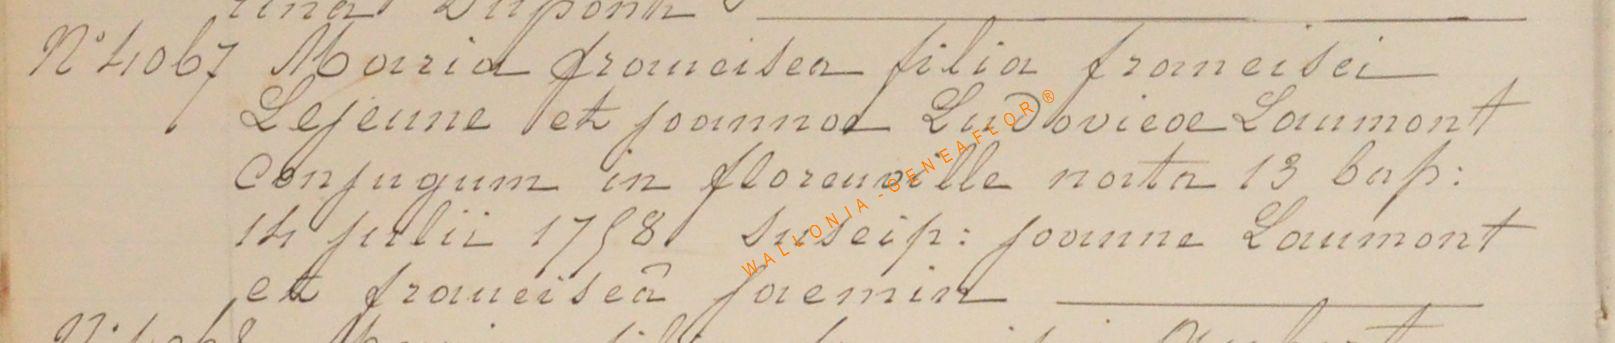 rina Dupont
N° 4067 Maria francisca filia francisci
Lejeune et joannae Ludovicae Laumont
conjugum in florenville nata 13 bap:
14 julii 1758. Suscip: joanne Laumont
et franciscâ jacmin
WALLONIA-GENEAFLOR®